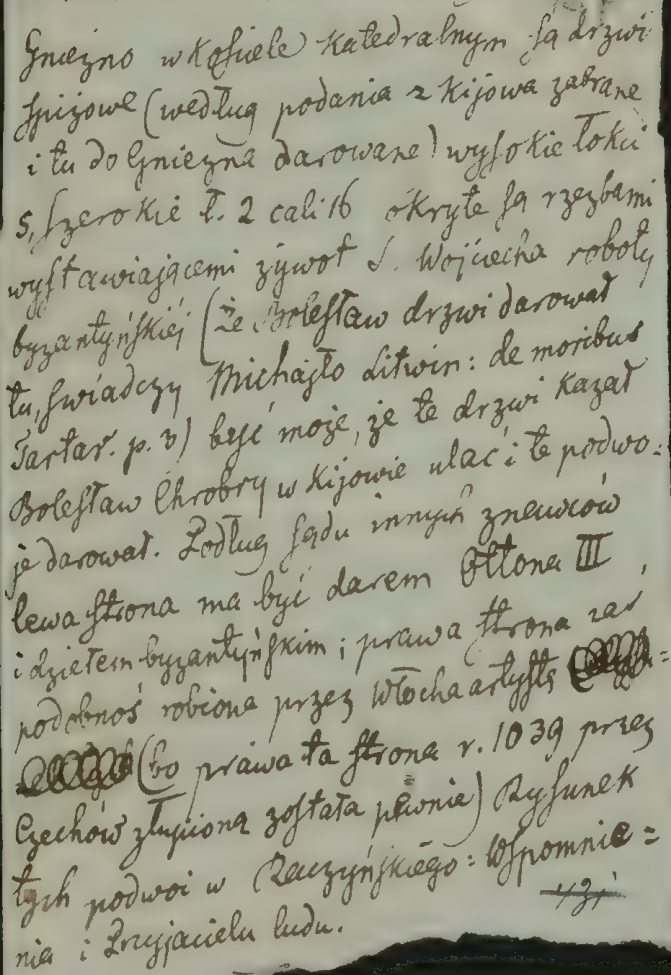 Gniezno w Kościele Katedralnym są drzwi
spiżowe (według podania z Kijowa zabrane
i tu do Gniezna darowane) wysokie łokci
5, szerokie ł. 2 cali 16 okryte są rzezbami
wystawiającemi żywot S. Wojciecha roboty
byzantyńskiéj (że Bolesław drzwi darował
tu, swiadczy Michajło Litwin: de moribus
Tartar. p. 3) być może, że te drzwi Kazał
Bolesław Chrobry w Kijowie ulać i te podwo=
je darował. Podług sądu innych znawców
lewa strona ma być darem Ottona III,
i dziełem byzantyńskim; prawa strona zaś
podobnoś robiona przez Włocha artystę
(bo prawa ta strona r. 1039 przez
Czechów złupioną została pewnie) Rysunek
tych podwoi w Raczyńskiego: Wspomnie=
nia i Przyjacielu ludu.